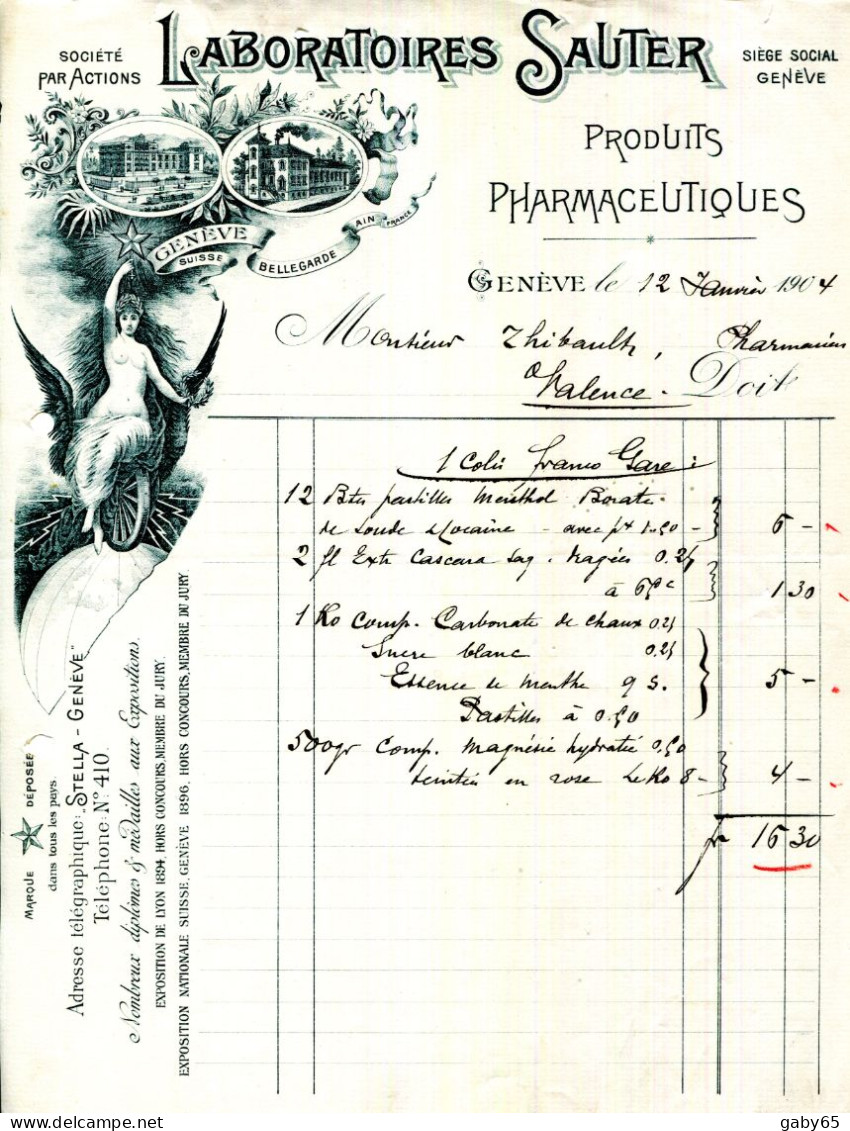 SOCIÉTÉ
PAR ACTIONS
LABORATOIRES SAUTER
SIÈGE SOCIAL
GENÈVE
PRODUITS
PHARMACEUTIQUES
GENÈVE
SUISSE
BELLEGARDE
AIN
FRANCE
GENÈVE le 12 Janvier 1904
Monsieur Thibault, Pharmacien
Valence - Doit
1 Colis franco Gare :
12 Btes pastilles Menthol Borate
de soude & Cocaine - avec 1.50 - 6 -
2 fl Extr Cascara Sag. Dragées 0.25
à 65c 1 30
1 Ko Comp. Carbonate de chaux 0.25
Sucre blanc 0.25
Essence de menthe q s. 5 -
Pastilles à 0.50
500gr Comp. Magnésie hydratée 0.50
teintées en rose Le Ko 8 - 4 -
fr 16 30
MARQUE DÉPOSÉE
dans tous les pays.
Adresse télégraphique: „STELLA - GENÈVE"
Téléphone: No 410.
Nombreux diplômes & médailles aux Expositions.
EXPOSITION DE LYON 1894, HORS CONCOURS, MEMBRE DU JURY.
EXPOSITION NATIONALE SUISSE, GENÈVE 1896, HORS CONCOURS, MEMBRE DU JURY.
gaby65